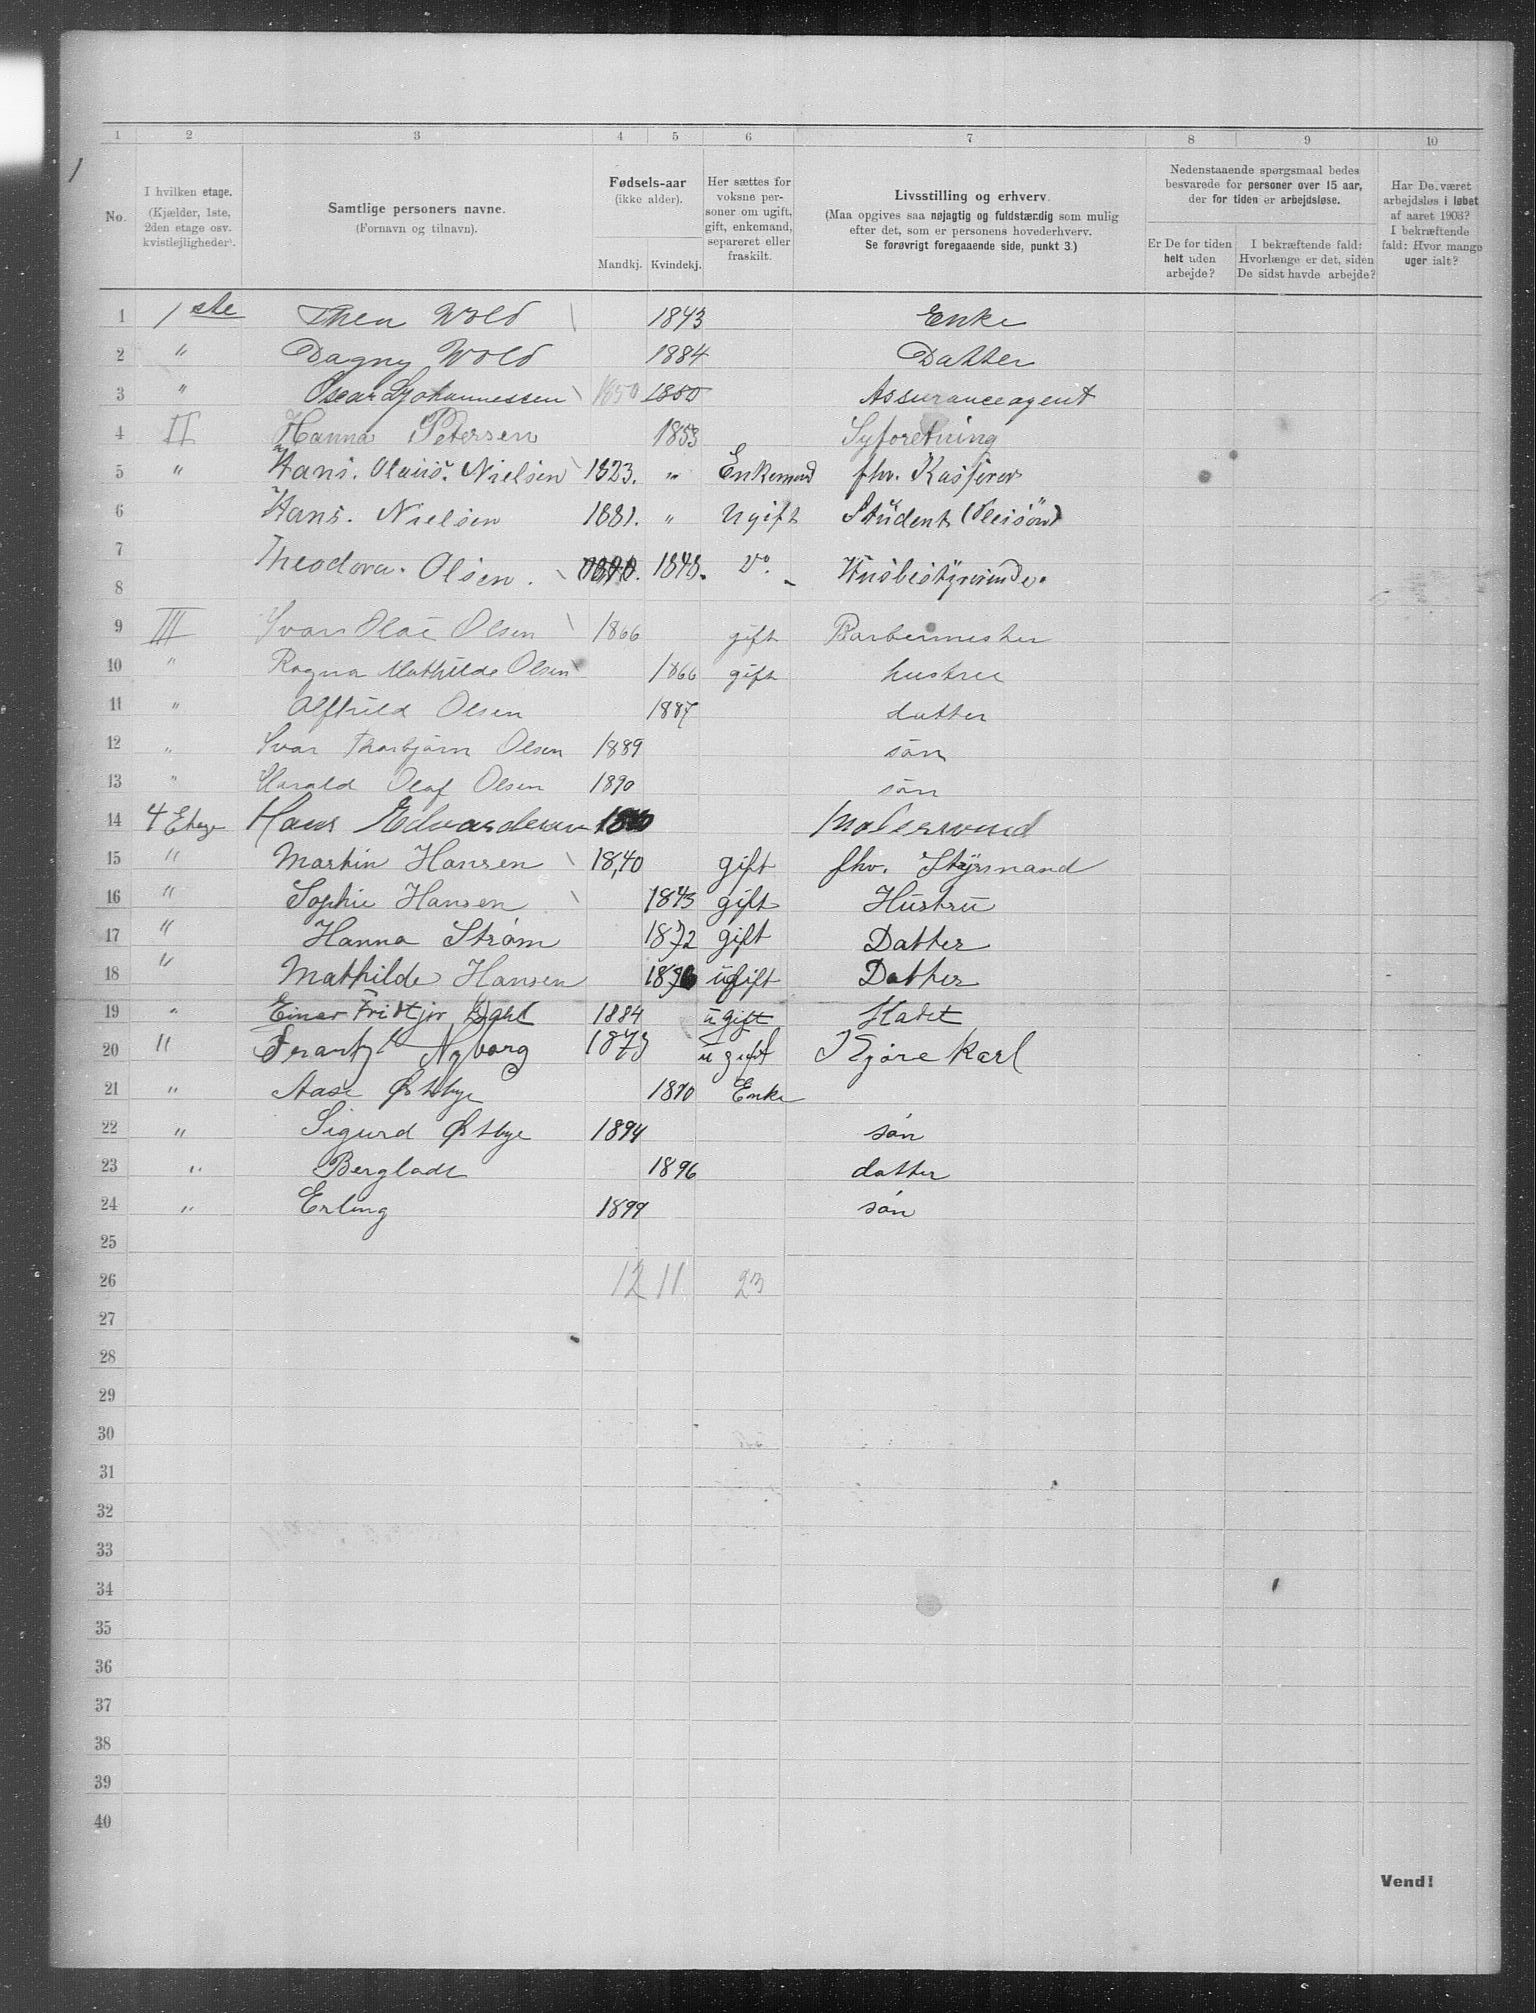 1 2 3 4 5 6 7 8 9 10
1
No.
I hvilken etage.
(Kjælder, 1ste,
2den etage osv.
kvistlejligheder).
Samtlige personers navne.
(Fornavn og tilnavn).
Fødsels-aar
(ikke alder).
Mandkj. Kvindekj.
Her sættes for
voksne per-
soner om ugift,
gift, enkemand,
separeret eller
fraskilt.
Livsstilling og erhverv.
(Maa opgives saa nøjagtig og fuldstændig som mulig
efter det, som er personens hovederhverv.
Se forøvrigt foregaaende side, punkt 3.)
Nedenstaaende spørgsmaal bedes
besvarede for personer over 15 aar,
der for tiden er arbejdsløse.
Er De for tiden
helt uden
arbejde?
I bekræftende fald:
Hvorlænge er det, siden
De sidst havde arbejde?
Har De været
arbejdsløs i løbet
af aaret 1903?
I bekræftende
fald: Hvor mange
uger ialt?
1 1ste Thea Wold 1843 Enke
2 " Dagny Wold 1884 Datter
3 " Oscar Johannessen 1850 1850 Assuranceagent
4 II Hanna Petersen 1853 Syforetning
5 " Hans. Olaus. Nielsen 1823. " Enkemand fhv. Kasserer
6 Hans. Nielsen 1881. " Ugift Student (Pleisøn)
7 Theodora. Olsen. 1848. Do. Husbestyrerinde.
8
9 III Ivar Olai Olsen 1866 gift Barbermester
10 " Ragna Mathilde Olsen 1866 gift hustru
11 " Alfhild Olsen 1887 datter
12 " Ivar Thorbjørn Olsen 1889 søn
13 " Harald Olaf Olsen 1890 søn
14 4 Etage Hans Edvardsen Malersvend
15 " Martin Hansen 1840 gift fhv. Styrmand
16 " Sophie Hansen 1843 gift Hustru
17 " Hanna Strøm 1872 gift Datter
18 " Mathilde Hansen ugift Datter
19 " Einar Fridtjor Dahl 1884 ugift Kadet
20 " Frantz Nyborg 1873 ugift Kjøre Karl
21 " Aase Østbye 1870 Enke
22 " Sigurd Østbye 1894 søn
23 " Bergladt 1896 datter
24 " Erling 1899 søn
25
26 12 11 23
27
28
29
30
31
32
33
34
35
36
37
38
39
40
Vend!